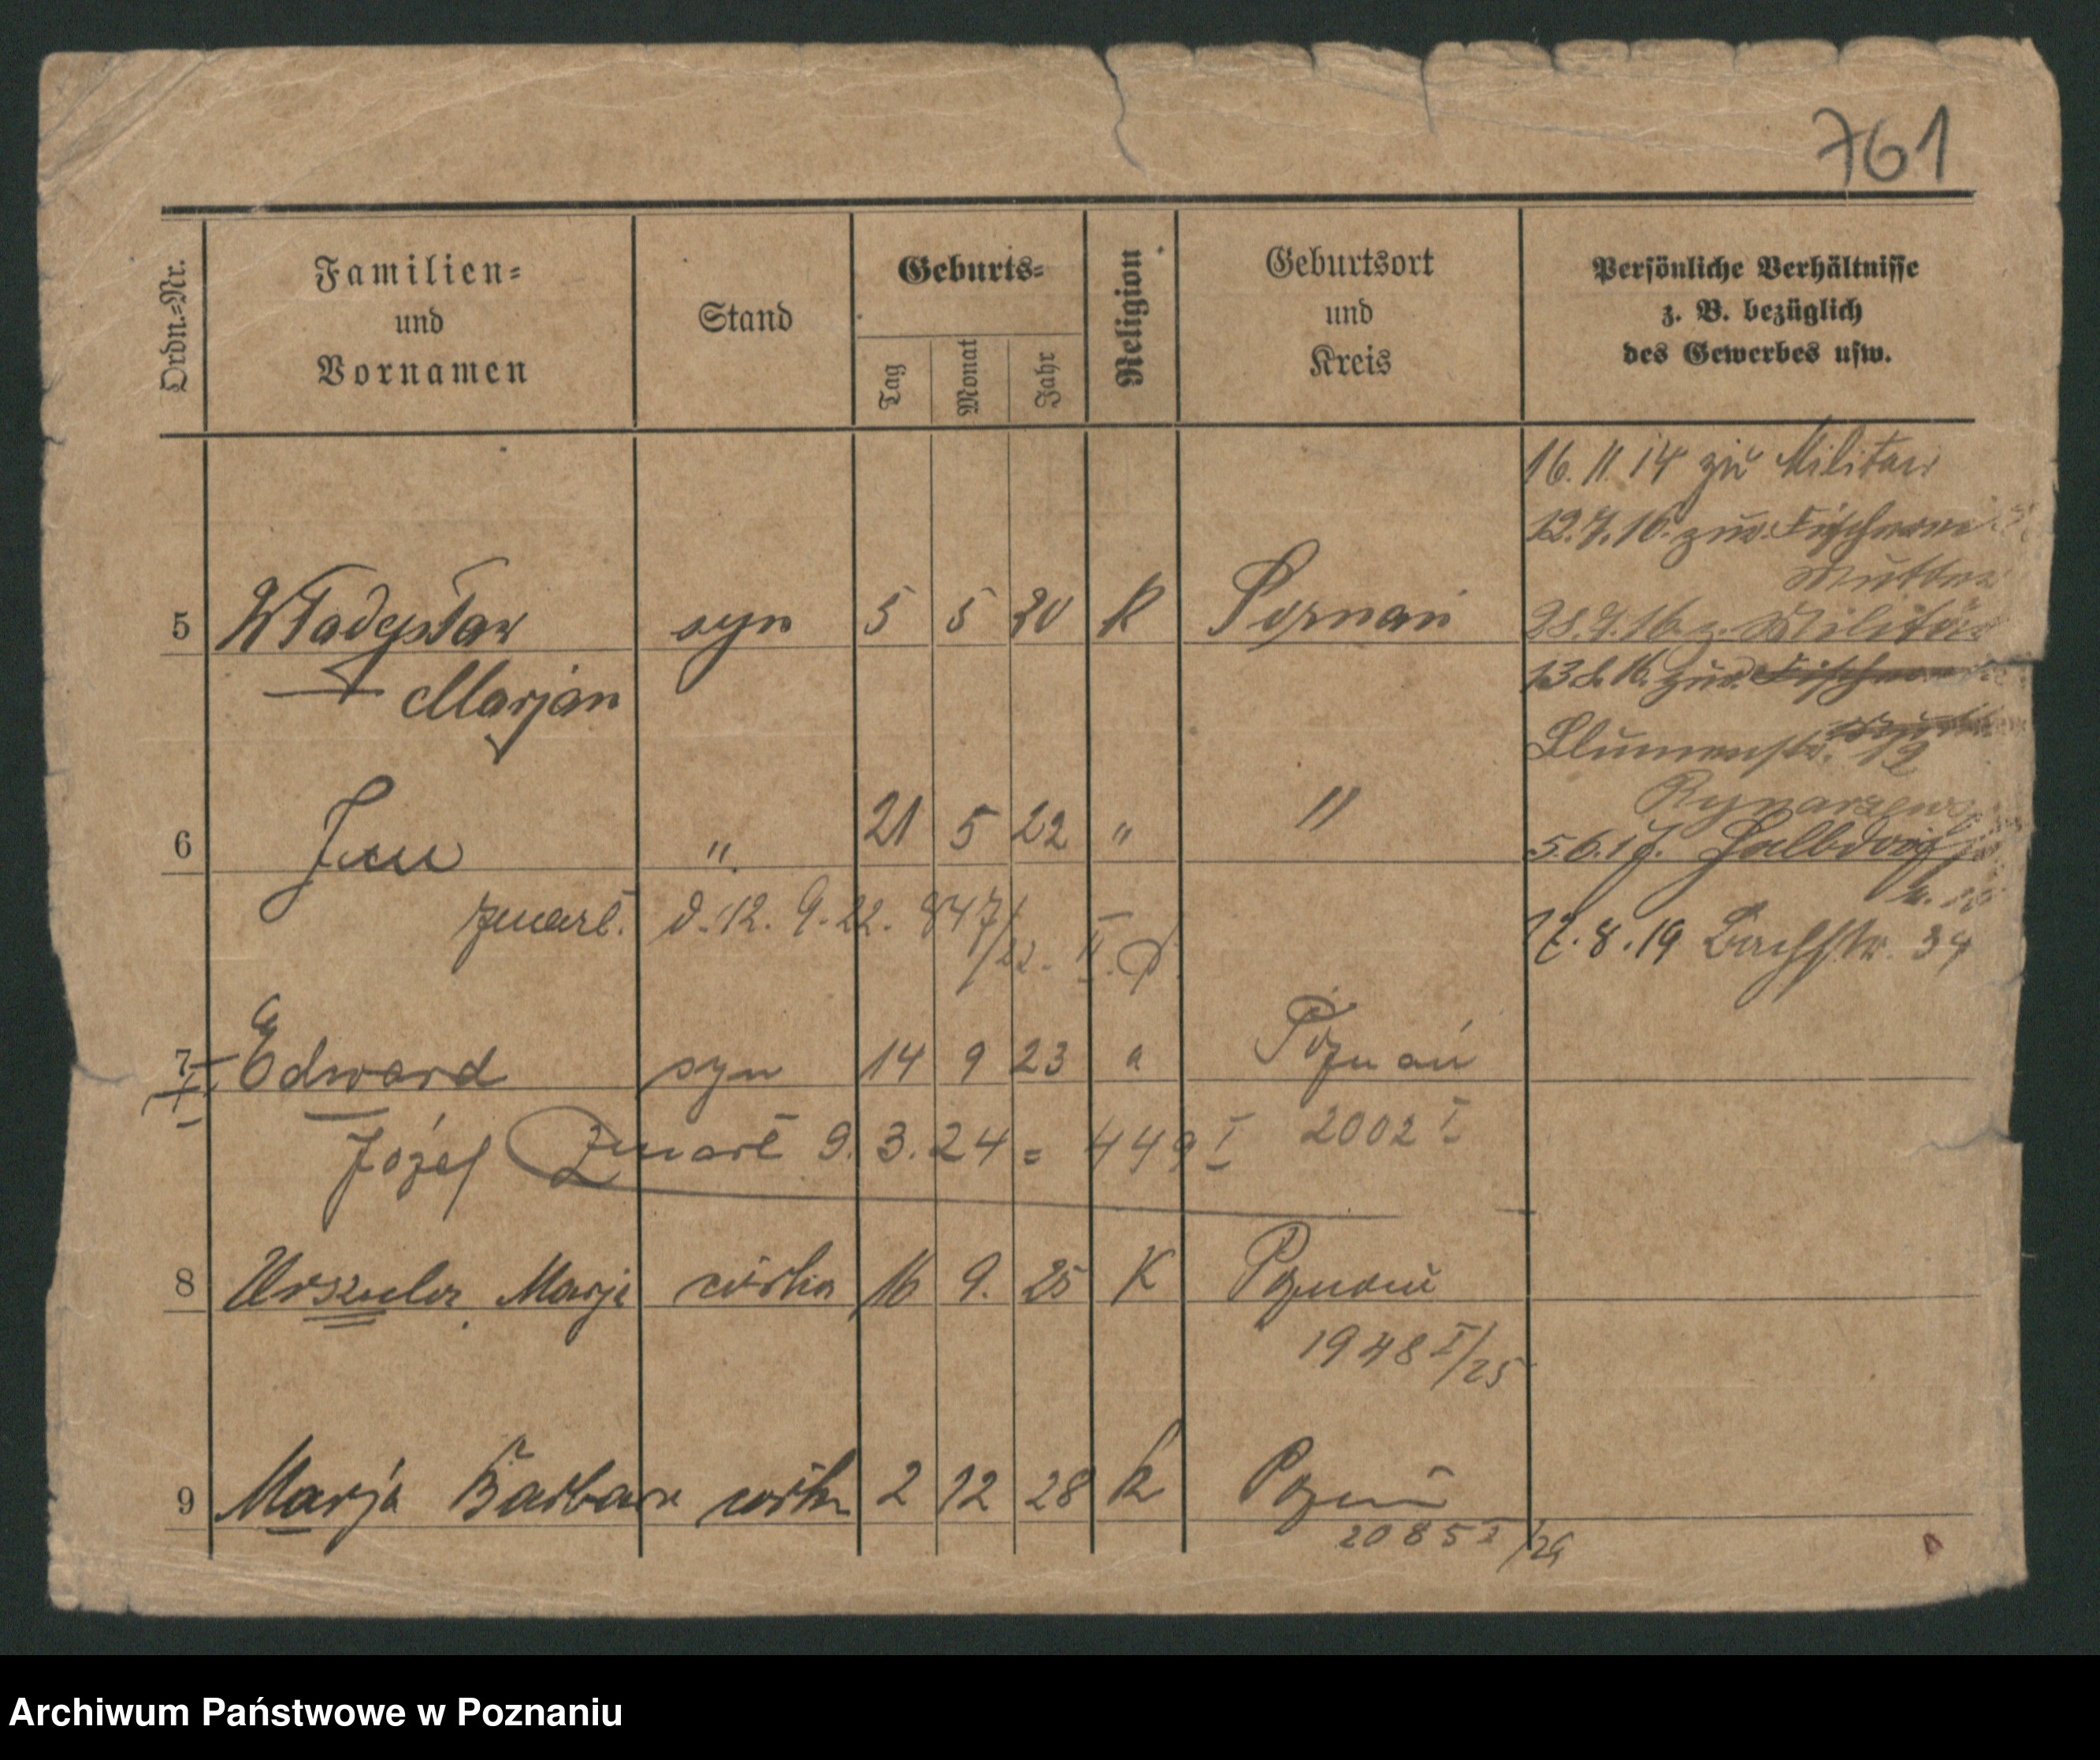 761
Ordn.=Nr.
Familien=
und
Vornamen
Stand
Geburts=
Tag
Monat
Jahr
Religion
Geburtsort
und
Kreis
Persönliche Verhältnisse
z. B. bezüglich
des Gewerbes usw.
16. 11. 14 zu Militair
12.7.16. zur.
Mutter
5 Władysław syn 5 5 20 K Poznań
z. Militär
Marjan
13.8.16. zur.
Blumenstr. 12
6 Jan " 21 5 22 " "
5.6.17.
zmarł. d. 12. 9. 22. 847/22. II. P.
17. 8. 19 Bachstr. 34
7 Edward syn 14 9 23 " Poznań
Józef Zmarł 9. 3. 24 = 449 I 2002 I
8 Urszula Marja córka 16 9. 25 K Poznań
1948 I/25
9 Marja Barbara córka 2 12 28 K Poznań
2085 I/29
Archiwum Państwowe w Poznaniu